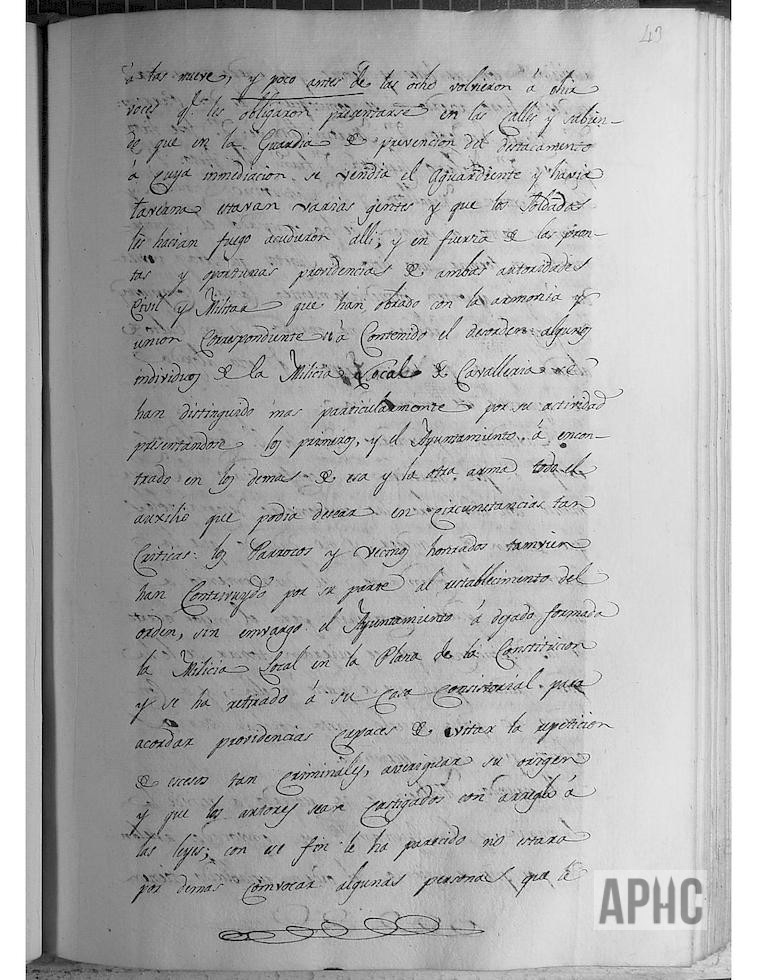 43
á las nueve, y poco antes de las ocho volvieron á ohir
voces qe. les obligaron presentarse en las calles y sabien-
do que en la Guardia de prevencion del destacamento
á cuya inmediacion se vendia el Aguardiente y havia
taverna estavan varias gentes y que los Soldados
les hacian fuego acudieron alli; y en fuerza de las pron-
tas y oportunas providencias de ambas autoridades
Civil y Militar que han obrado con la armonia y
union Correspondiente á Contenido el desorden: algunos
individuos de la Milicia Local de Cavalleria se
han distinguido mas particularmente por su actividad
presentandose los primeros, y el Ayuntamiento á encon-
trado en los demas de esa y la otra arma todo el
auxilio que podia desear en circunstancias tan
Criticas: los Parrocos y vecinos honrados tamvien
han Contrivuydo por su parte al restablecimento del
orden, sin emvargo el Ayuntamiento á dejado formada
la Milicia Local en la Plaza de la Constitucion
y se ha retirado á su Casa Consistorial para
acordar providencias Capaces de evitar la repeticion
de escesos tan Criminales, averiguar su origen
y que los autores sean Castigados con arreglo á
las leyes; con ese fin le ha parecido no estará
por demas comvocar algunas personas que le
APHC